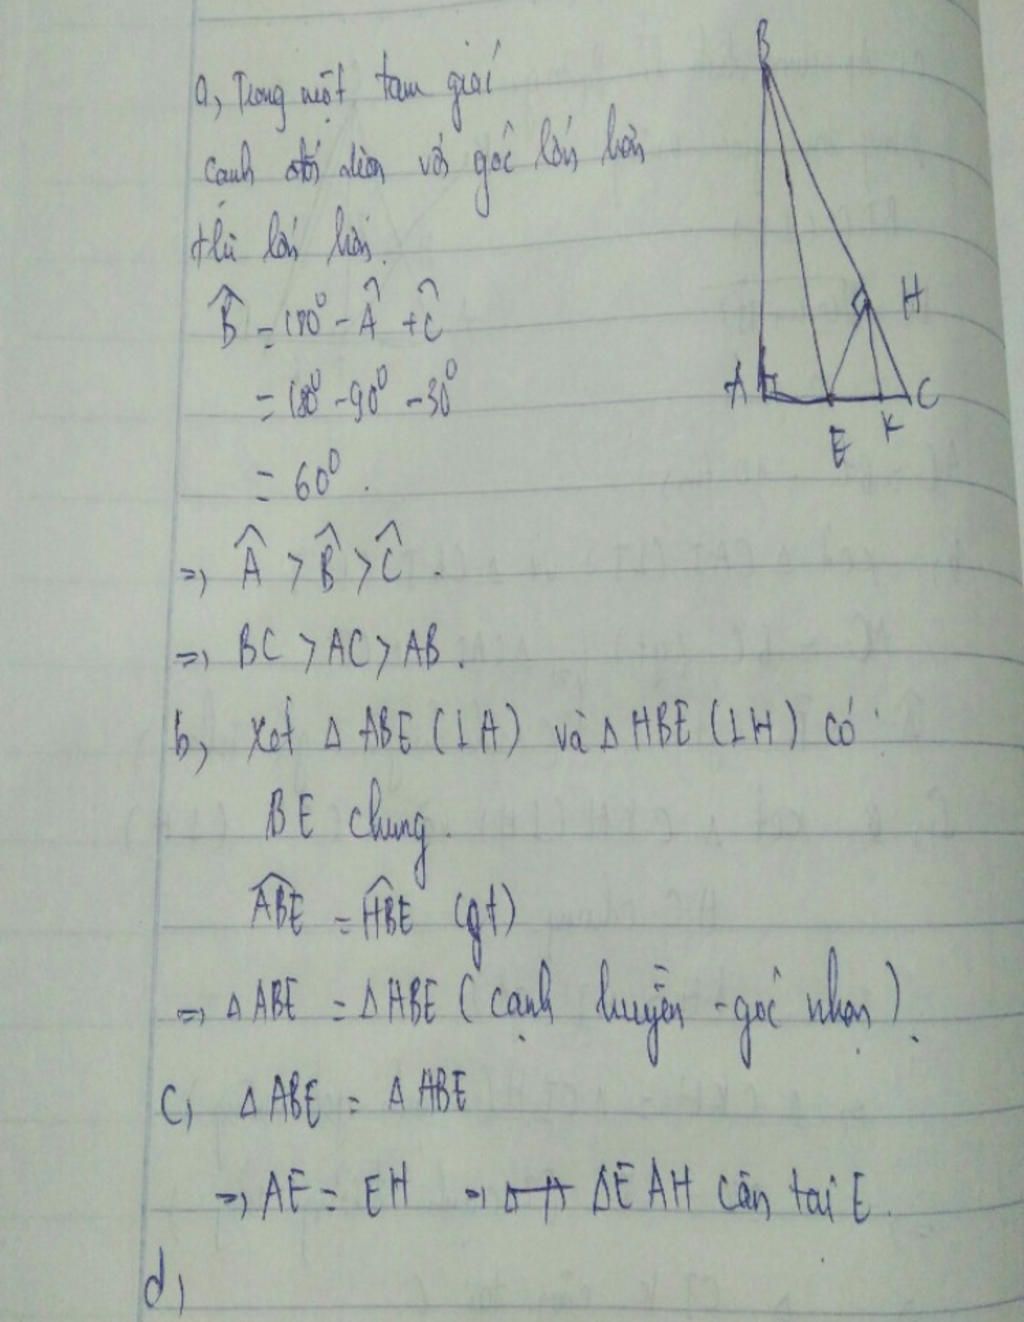 a, Trong một tam giác
cạnh đối diện với góc lớn hơn
thì lớn hơn.
B̂ = 180⁰ - Â + Ĉ
= 180⁰ - 90⁰ - 30⁰
= 60⁰.
=> Â > B̂ > Ĉ.
=> BC > AC > AB.
b, Xét Δ ABE (⊥A) và Δ HBE (⊥H) có:
BE chung.
ABE = HBE (gt)
=> Δ ABE = Δ HBE (cạnh huyền - góc nhọn).
c, Δ ABE = Δ HBE
=> AE = EH => ΔEAH cân tại E.
d,
B
H
A
C
E
K